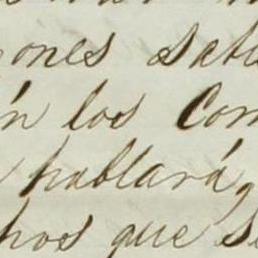 ones satis
n los Com
hablará,
hos que s